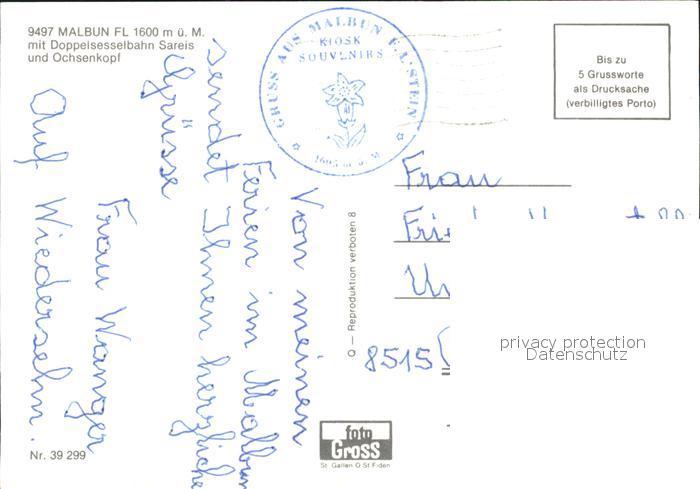 9497 MALBUN FL 1600 m ü. M.
mit Doppelsesselbahn Sareis
und Ochsenkopf
GRUSS AUS MALBUN F.L-STEIN
KIOSK
SOUVENIRS
1605 m ü. M.
Bis zu
5 Grussworte
als Drucksache
(verbilligtes Porto)
Von meinen
Ferien im Malbun
sendet Ihnen herzliche
Grüsse
Frau Wanger
Auf Wiedersehn.
Q — Reproduktion verboten 8
Frau
8515
privacy protection
Datenschutz
foto
Gross
St. Gallen O St F-den
Nr. 39 299